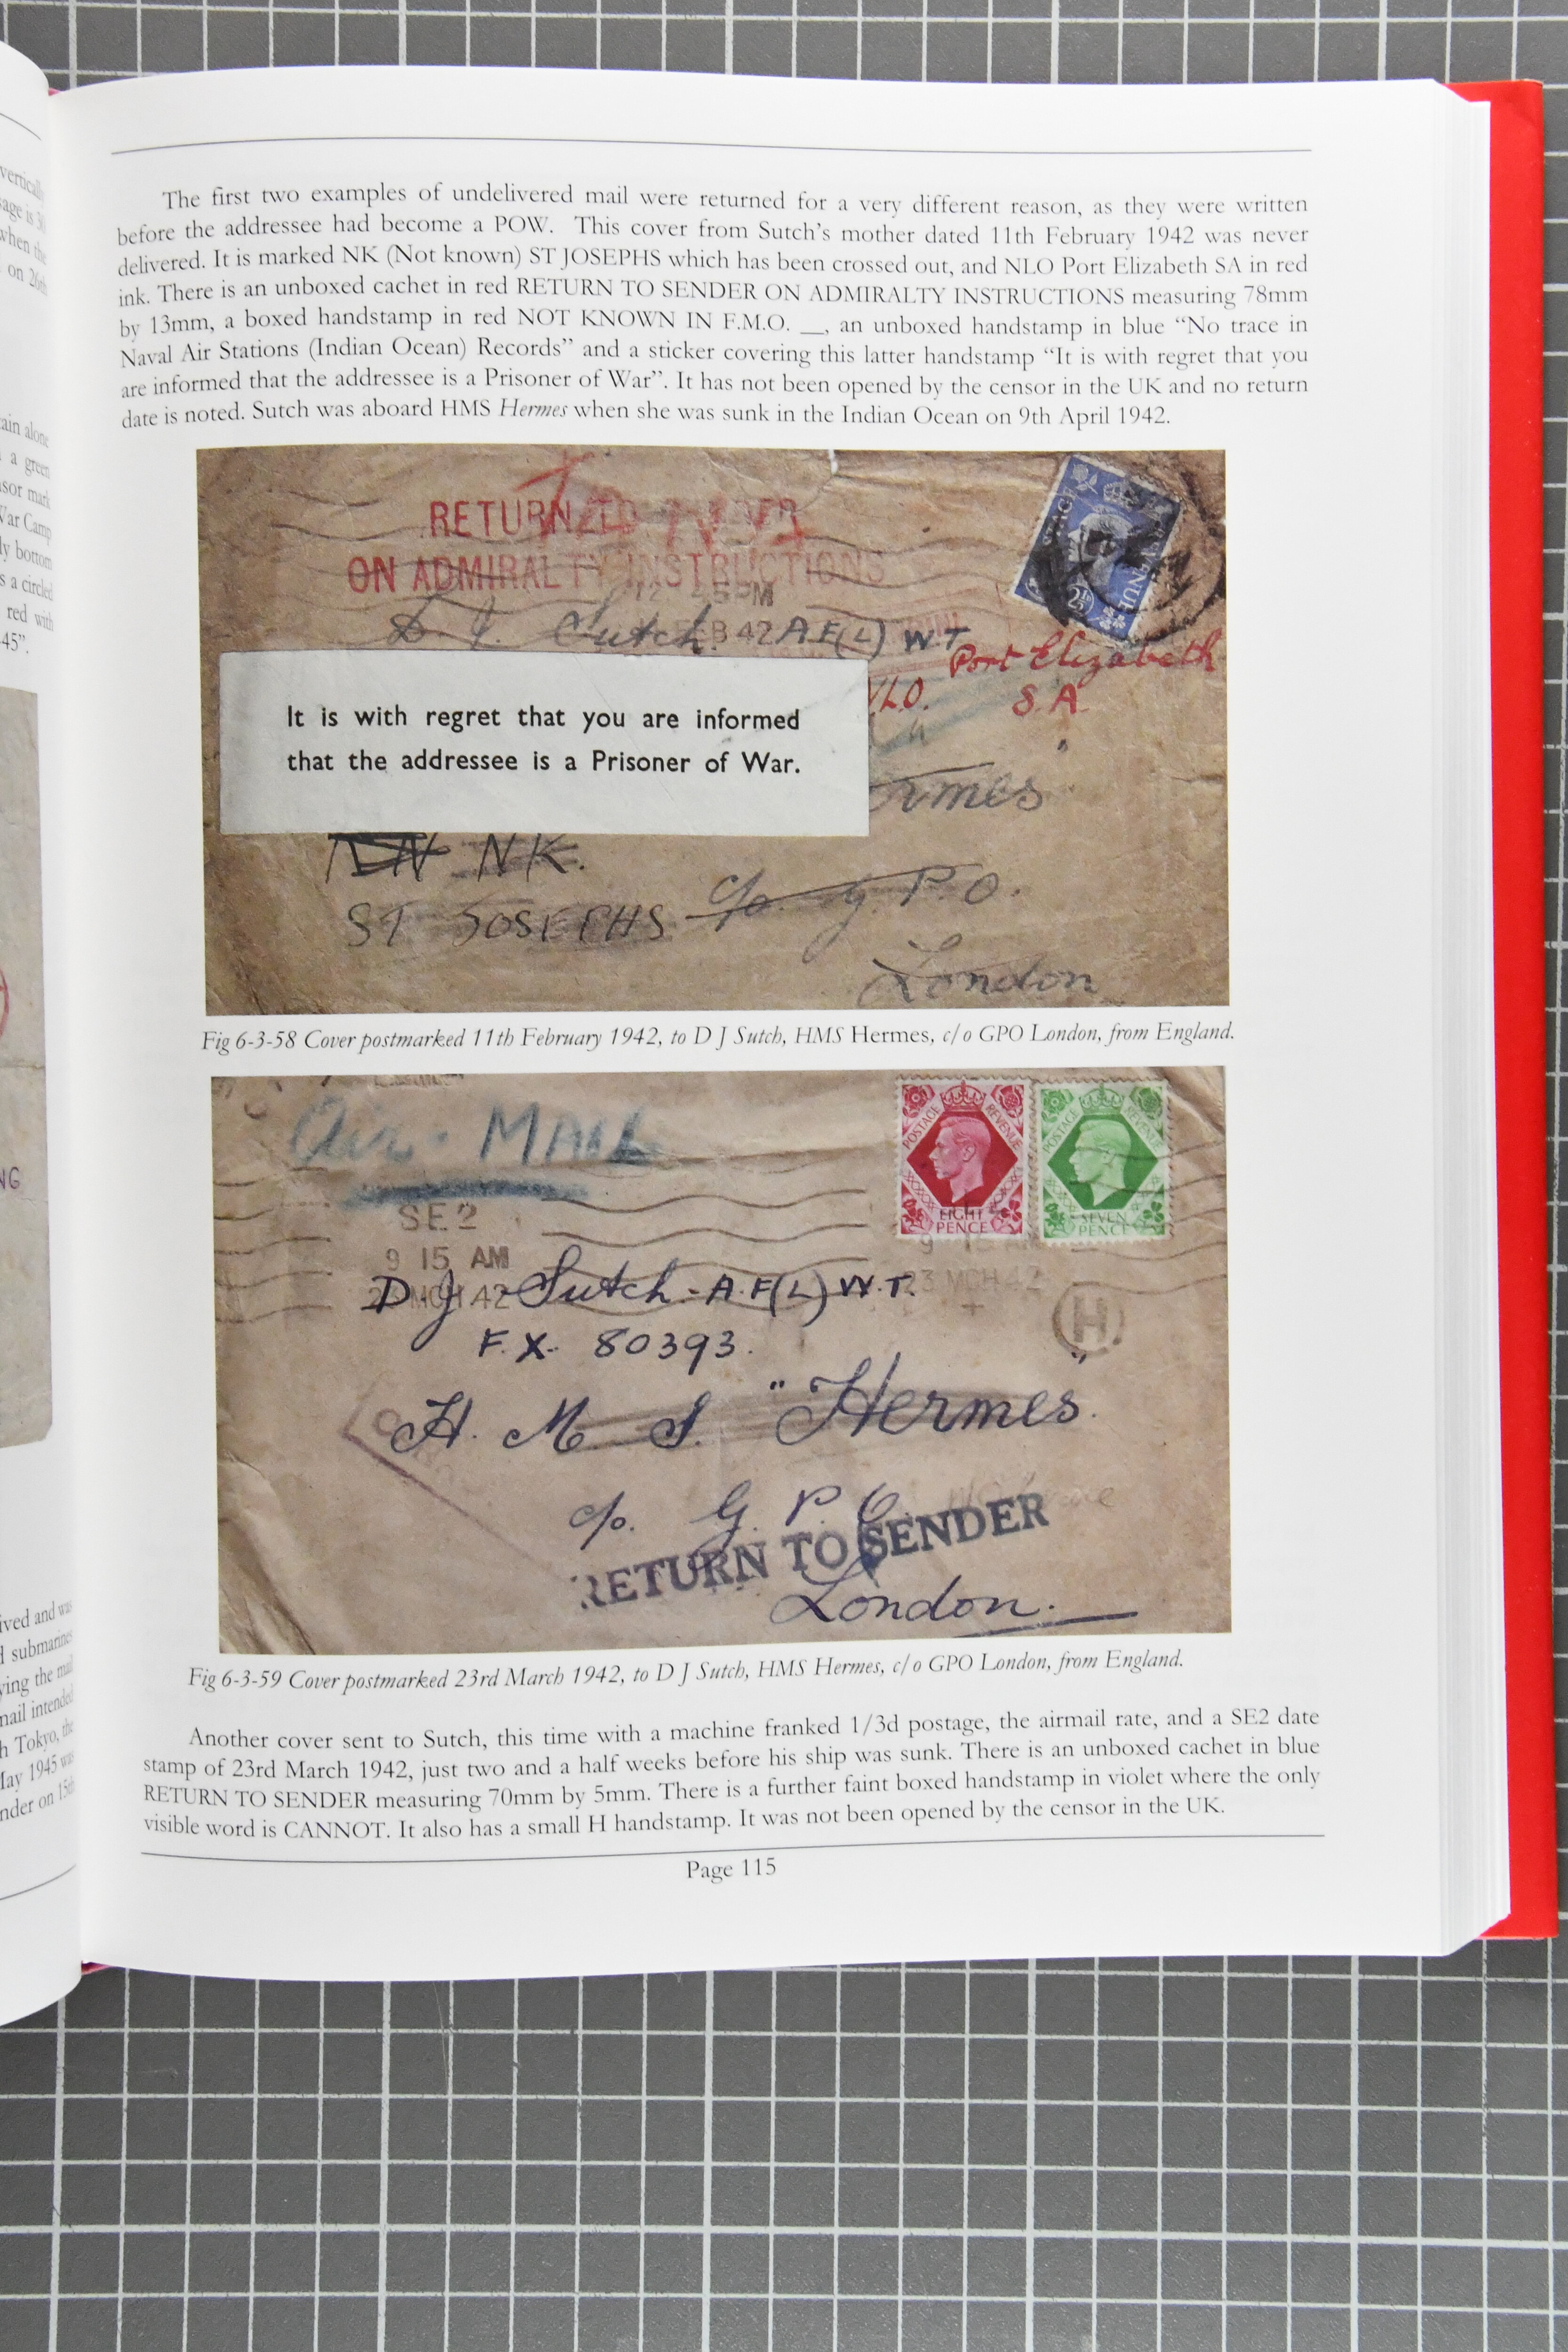 The first two examples of undelivered mail were returned for a very different reason, as they were written
before the addressee had become a POW. This cover from Sutch's mother dated 11th February 1942 was never
delivered. It is marked NK (Not known) ST JOSEPHS which has been crossed out, and NLO Port Elizabeth SA in red
ink. There is an unboxed cachet in red RETURN TO SENDER ON ADMIRALTY INSTRUCTIONS measuring 78mm
by 13mm, a boxed handstamp in red NOT KNOWN IN F.M.O. __, an unboxed handstamp in blue “No trace in
Naval Air Stations (Indian Ocean) Records” and a sticker covering this latter handstamp “It is with regret that you
are informed that the addressee is a Prisoner of War”. It has not been opened by the censor in the UK and no return
date is noted. Sutch was aboard HMS Hermes when she was sunk in the Indian Ocean on 9th April 1942.
RETURN TO
ON ADMIRALTY INSTRUCTIONS
12 45 PM
FEB 42
D. J. Sutch. A.F(L) W.T
Port Elizabeth
S.A.
It is with regret that you are informed
that the addressee is a Prisoner of War.
NK.
ST JOSEPHS
c/o. G.P.O.
London
Fig 6-3-58 Cover postmarked 11th February 1942, to D J Sutch, HMS Hermes, c/o GPO London, from England.
Air. MAIL
POSTAGE REVENUE
EIGHT PENCE
POSTAGE REVENUE
SEVEN PENCE
SE2
9 15 AM
MCH 42
23 MCH 42
D. J. Sutch. A.F(L) W.T.
F.X. 80393.
H
H. M. S. "Hermes".
c/o. G. P. O.
RETURN TO SENDER
London.
Fig 6-3-59 Cover postmarked 23rd March 1942, to D J Sutch, HMS Hermes, c/o GPO London, from England.
Another cover sent to Sutch, this time with a machine franked 1/3d postage, the airmail rate, and a SE2 date
stamp of 23rd March 1942, just two and a half weeks before his ship was sunk. There is an unboxed cachet in blue
RETURN TO SENDER measuring 70mm by 5mm. There is a further faint boxed handstamp in violet where the only
visible word is CANNOT. It also has a small H handstamp. It was not been opened by the censor in the UK.
Page 115